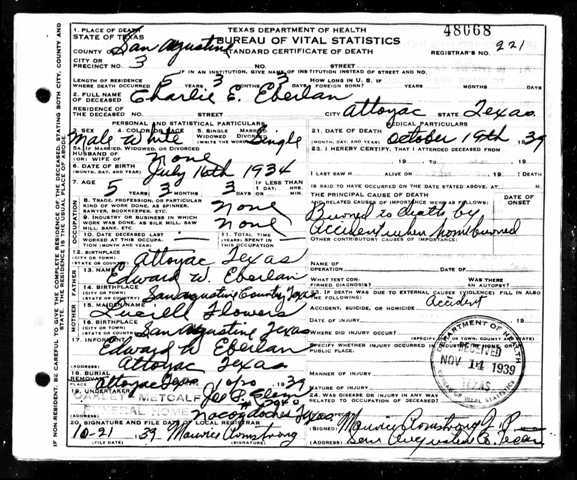 1. PLACE OF DEATH
STATE OF TEXAS
TEXAS DEPARTMENT OF HEALTH
BUREAU OF VITAL STATISTICS
STANDARD CERTIFICATE OF DEATH
48668
COUNTY OF San Augustine
REGISTRAR'S NO. 221
CITY OR
PRECINCT NO. 3
STREET
IF IN AN INSTITUTION, GIVE NAME OF INSTITUTION INSTEAD OF STREET AND NO.
LENGTH OF RESIDENCE
WHERE DEATH OCCURRED 5 3 3
HOW LONG IN U. S. IF
FOREIGN BORN?
2. FULL NAME
OF DECEASED Charlie E. Eberlan
RESIDENCE OF
THE DECEASED
STREET
CITY Attoyac STATE Texas
PERSONAL AND STATISTICAL PARTICULARS
MEDICAL PARTICULARS
3. SEX Male 4. COLOR OR RACE White 5. SINGLE MARRIED WIDOWED DIVORCED (WRITE THE WORD) Single
21. DATE OF DEATH October 19th 39
(MONTH, DAY, AND YEAR)
22. I HEREBY CERTIFY, THAT I ATTENDED DECEASED FROM
HUSBAND OF
(OR) WIFE OF None
6. DATE OF BIRTH July 16th 1934
(MONTH, DAY, AND YEAR)
7. AGE 5 3 3
IF LESS THAN
1 DAY,
HRS.
MIN.
TO HAVE OCCURRED ON THE DATE STATED ABOVE, AT
THE PRINCIPAL CAUSE OF DEATH
AND RELATED CAUSES OF IMPORTANCE WERE:
DATE OF
ONSET
8. TRADE, PROFESSION, OR PARTICULAR
KIND OF WORK DONE, AS SPINNER,
SAWYER, BOOKKEEPER, ETC. None
9. INDUSTRY OR BUSINESS IN WHICH
WORK WAS DONE, AS SILK MILL, SAW
MILL, BANK, ETC. None
Burned to death by
Accident when home burned
OTHER CONTRIBUTORY CAUSES OF IMPORTANCE:
10. DATE DECEASED LAST
WORKED AT THIS OCCUPATION
(MONTH AND YEAR)
11. TOTAL TIME
SPENT IN THIS
OCCUPATION
12. BIRTHPLACE
(CITY OR TOWN)
Attoyac Texas
OPERATION
DATE OF
13. NAME
Edward W. Eberlan
WHAT TEST CONFIRMED DIAGNOSIS?
WAS THERE
AN AUTOPSY?
14. BIRTHPLACE
(CITY OR TOWN)
San Augustine County, Texas
23. IF DEATH WAS DUE TO EXTERNAL CAUSES (VIOLENCE) FILL IN ALSO
THE FOLLOWING:
Accident
15. MAIDEN NAME
Lucille Flowers
ACCIDENT, SUICIDE, OR HOMICIDE
16. BIRTHPLACE
(CITY OR TOWN)
San Augustine Texas
WHERE DID INJURY OCCUR?
17. INFORMANT
Edward W Eberlan
SPECIFY WHETHER INJURY OCCURRED IN INDUSTRY, IN HOME, OR IN
PUBLIC PLACE.
(ADDRESS)
Attoyac Texas
MANNER OF INJURY
18. BURIAL
REMOVAL
Attoyac Texas 10/20 39
NATURE OF INJURY
19. UNDERTAKER
METCALF
FUNERAL HOME
(ADDRESS)
Nacogdoches Texas
24. WAS DISEASE OR INJURY IN ANY WAY
RELATED TO OCCUPATION OF DECEASED?
DEPARTMENT OF HEALTH
RECEIVED
NOV 14 1939
TEXAS
BUREAU OF VITAL STATISTICS
20. SIGNATURE AND FILE DATE OF LOCAL REGISTRAR
10-21 39 Maurice Armstrong
(FILE DATE)
(SIGNATURE)
(SIGNED) Maurice Armstrong J. P.
(ADDRESS) San Augustine Co. Texas
OCCUPATION
FATHER
MOTHER